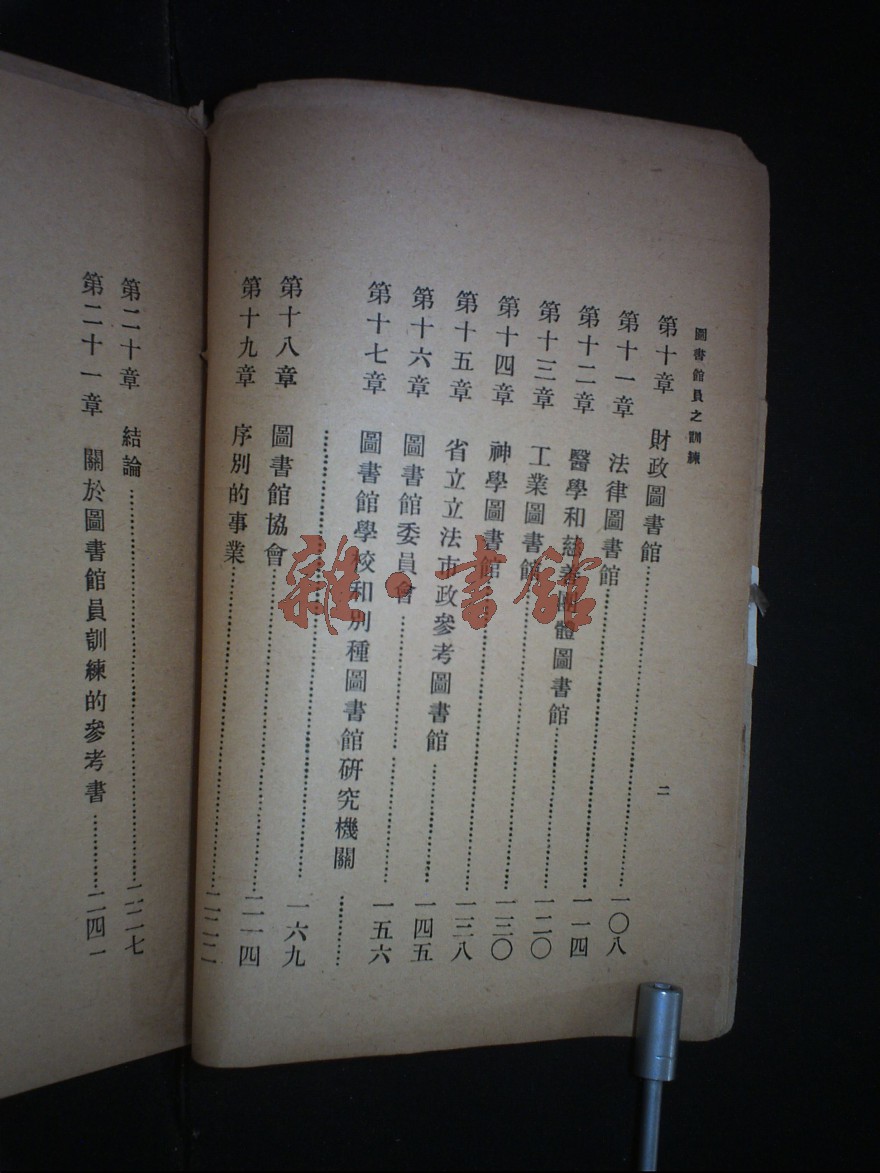 圖書館員之訓練　二
第十章　財政圖書館……一〇八
第十一章　法律圖書館……一一四
第十二章　醫學和慈善團體圖書館……一二〇
第十三章　工業圖書館……一三〇
第十四章　神學圖書館……一三八
第十五章　省立立法市政參考圖書館……一四五
第十六章　圖書館委員會……一五六
第十七章　圖書館學校和別種圖書館研究機關……
……一六九
第十八章　圖書館協會……二一四
第十九章　序別的事業……二二二
第二十章　結論……二二七
第二十一章　關於圖書館員訓練的參考書……二四一
雜·書館